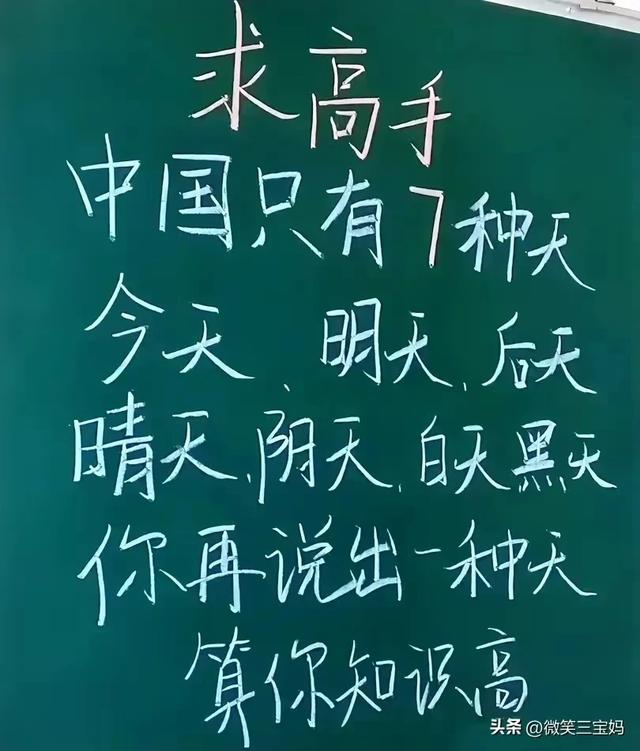 求高手
中国只有7种天
今天、明天、后天
晴天、阴天、白天黑天
你再说出一种天
算你知识高
头条 @微笑三宝妈